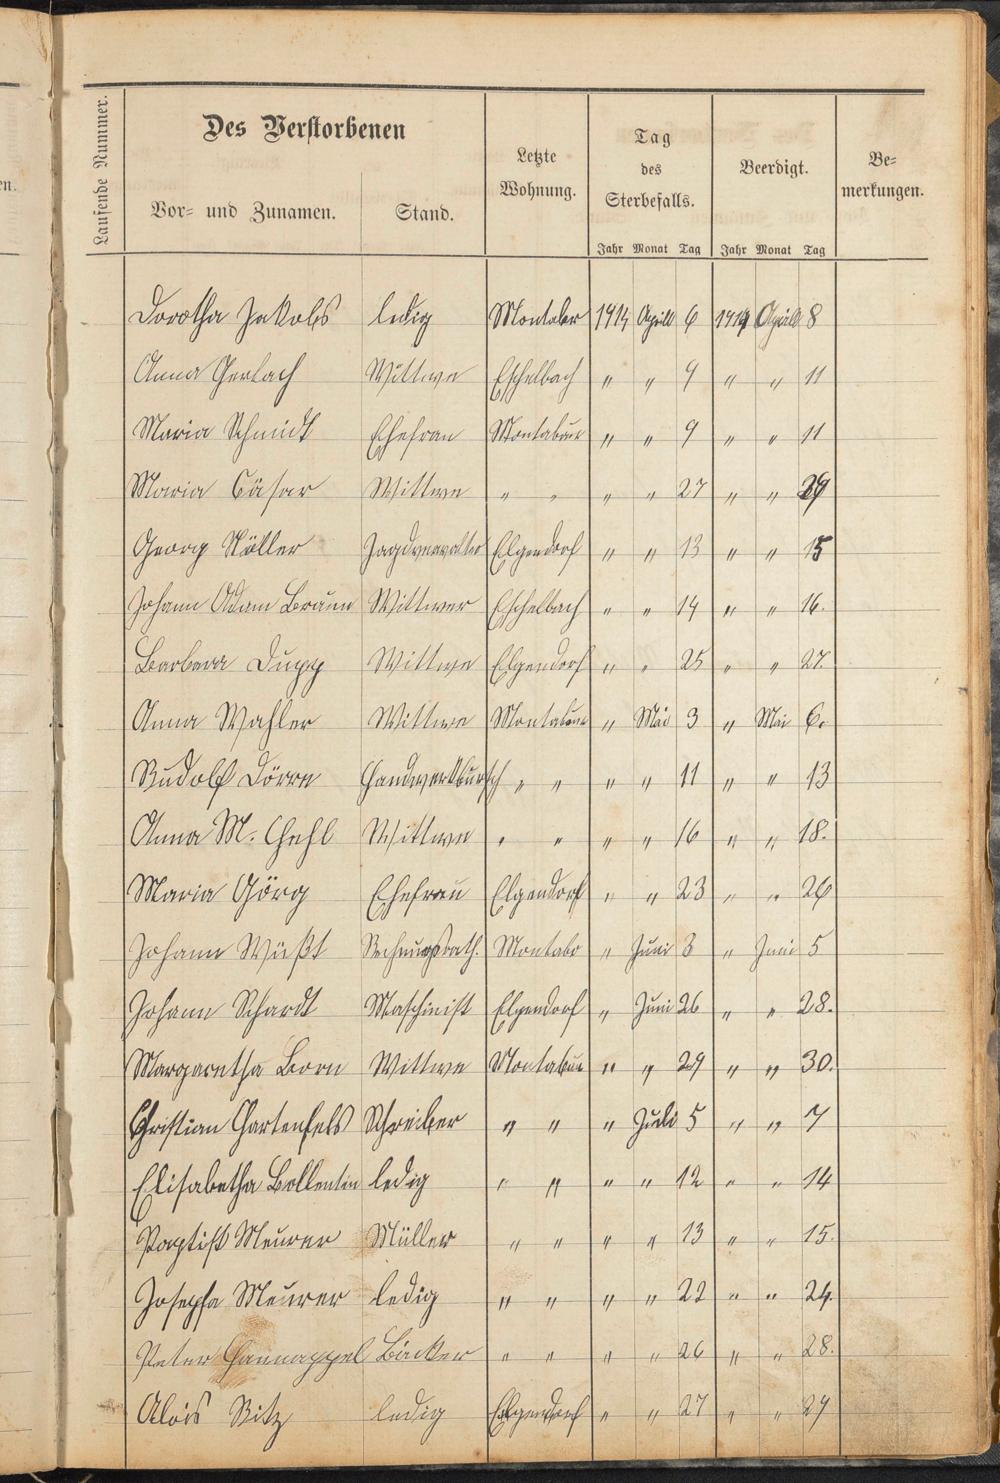 en.
Laufende Nummer.
Des Verstorbenen
Vor= und Zunamen.
Stand.
Letzte
Wohnung.
Tag
des
Sterbefalls.
Jahr Monat Tag
Beerdigt.
Jahr Monat Tag
Be=
merkungen.
Dorotha Jakobs ledig Montabr 1914 April 6 1914 April 8
Anna Gerlach Wittwe Eschelbach " " 9 " " 11
Maria Schmidt Ehefrau Montabaur " " 9 " " 11
Maria Cäsar Wittwe " " " " 27 " " 29
Georg Nöller Jagdverwalter Elgendorf " " 13 " " 15
Johann Adam Braun Wittwer Eschelbach " " 14 " " 16.
Barbara Dupp Wittwe Elgendorf " " 25 " " 27.
Anna Wahler Wittwe Montabaur " Mai 3 " Mai 6.
Rudolf Dörrn Handwerkbursch " " " " 11 " " 13
Anna M. Hehl Wittwe " " " " 16 " " 18.
Maria Görg Ehefrau Elgendorf " " 23 " " 26
Johann Wüßt Rechnungsrath. Montabr " Juni 3 " Juni 5
Johann Schardt Maschinist Elgendorf " Juni 26 " " 28.
Margaretha Born Wittwe Montabaur " " 29 " " 30.
Christian Hartenfels Schreiber " " " Juli 5 " " 7
Elisabetha Bollentin ledig " " " " 12 " " 14
Baptist Meurer Müller " " " " 13 " " 15.
Josepha Meurer ledig " " " " 22 " " 24.
Peter Hannappel Bäcker " " " " 26 " " 28.
Alois Bitz ledig Elgendorf " " 27 " " 29